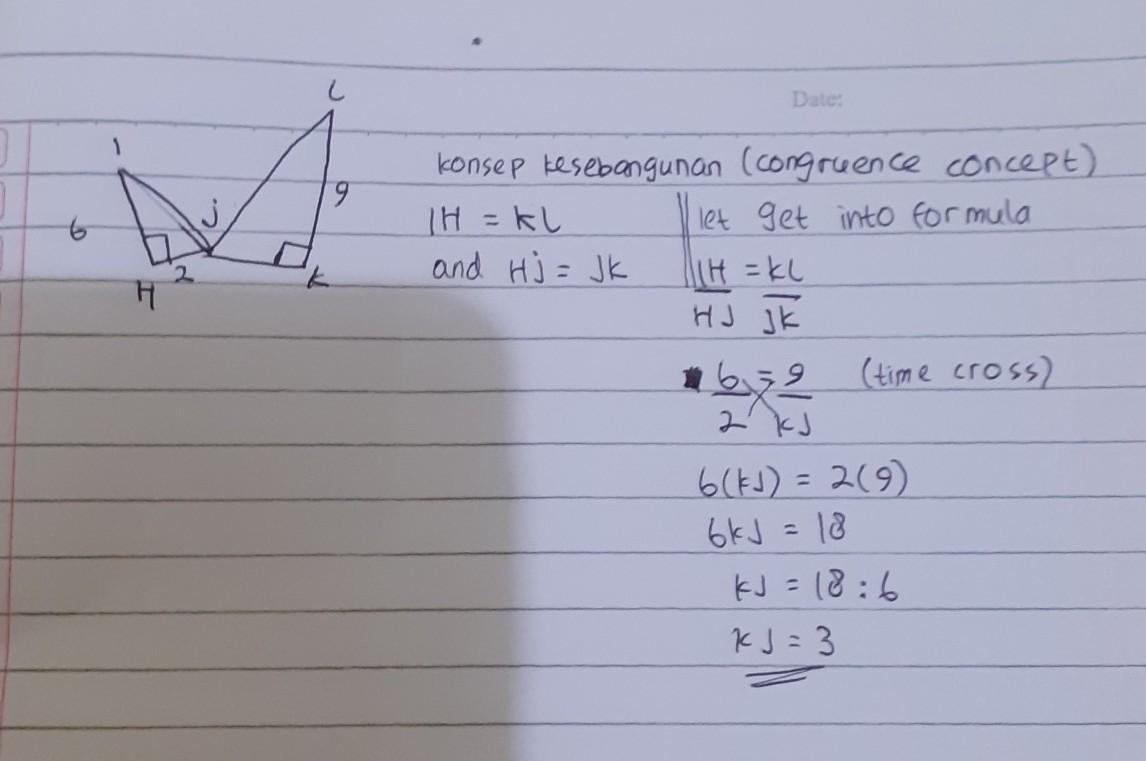 Date:
L
I
konsep kesebangunan (congruence concept)
9
J
6
IH = KL
let get into formula
2
H
K
and HJ = JK
IH = KL
HJ JK
6 = 9 (time cross)
2 KJ
6(KJ) = 2(9)
6KJ = 18
KJ = 18 : 6
KJ = 3